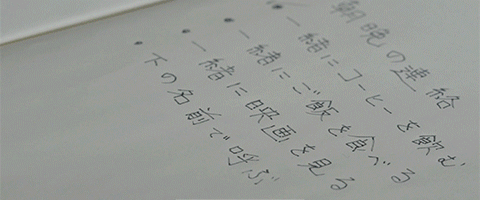 朝晩の連絡
・一緒にコーヒーを飲む
・一緒にご飯を食べる
・一緒に映画を見る
・下の名前で呼ぶ